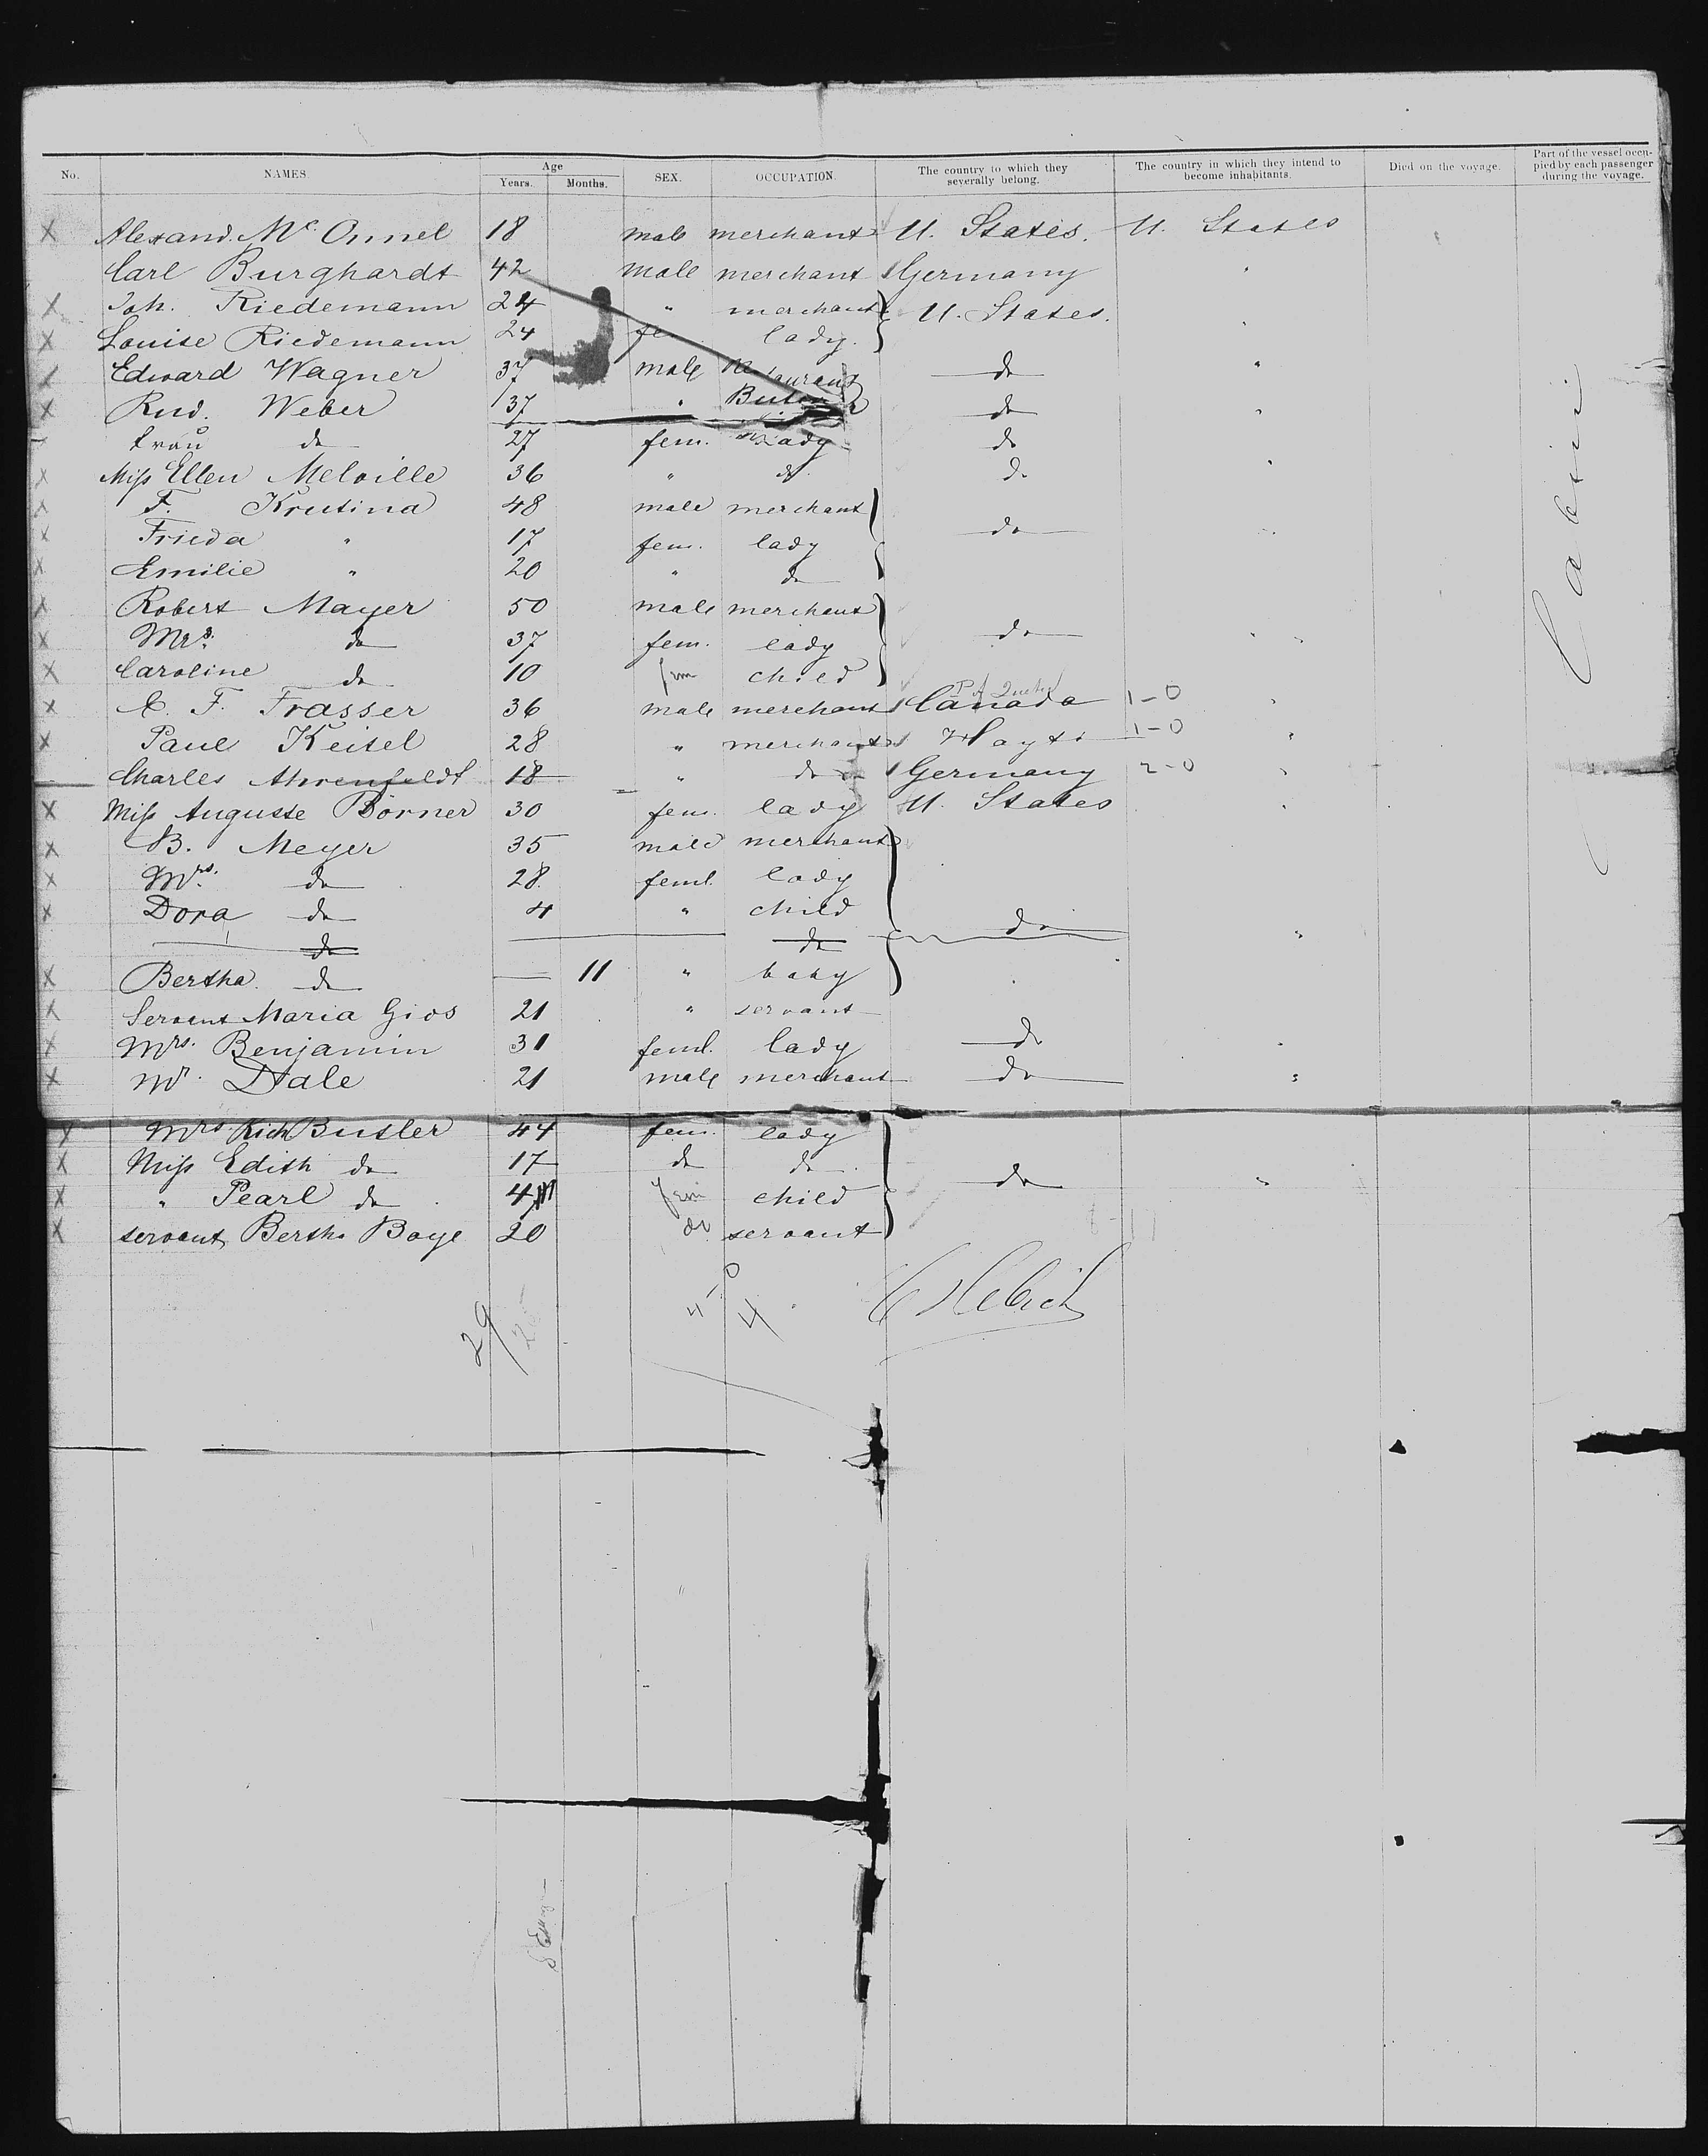 No. NAMES. Age Years. Months. SEX. OCCUPATION. The country to which they severally belong. The country in which they intend to become inhabitants. Died on the voyage. Part of the vessel occupied by each passenger during the voyage.
X Alexand. Mc. Onnel 18 male merchant U. States. U. States
Carl Burghardt 42 male merchant Germany "
X Joh. Riedemann 24 " merchant U. States.
X Louise Riedemann 24 fe lady. "
X Edward Wagner 37 male do "
X Rud. Weber 37 " do "
Frau do 27 fem. lady do
X Miss Ellen Melville 36 " do. do "
X F. Krutina 48 male merchant
X Frieda " 17 fem. lady do "
X Emilie " 20 " do
X Robert Mayer 50 male merchant
X Mrs. do 37 fem. lady do "
X Caroline do 10 fem child
X C. F. Frasser 36 male merchant Canada 1-0 "
X Paul Keitel 28 " merchant Hayti 1-0 "
Charles Ahrenfeldt 18 " do Germany 2-0 "
X Miss Auguste Börner 30 fem. lady U. States "
X B. Meyer 35 male merchant
X Mrs. do 28. feml. lady
X Dora do 4 " child do
do do "
X Bertha. do 11 " baby
X Servant Maria Gios 21 " servant
X Mrs. Benjamin 31 feml. lady do "
X Mr. Dale 21 male merchant do "
X Mrs. Rich Butler 44 fem. lady
X Miss Edith do 17 do do.
X " Pearl do 4 fem child do "
X servant Bertha Boye 20 do servant
Cabin
29
4